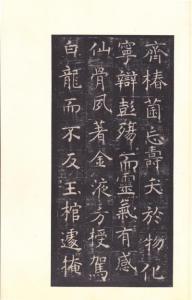 齊椿菌忘壽夭於物化
寧辯彭殤而靈氣有感
仙骨夙著金液方授駕
白龍而不反王棺遽掩